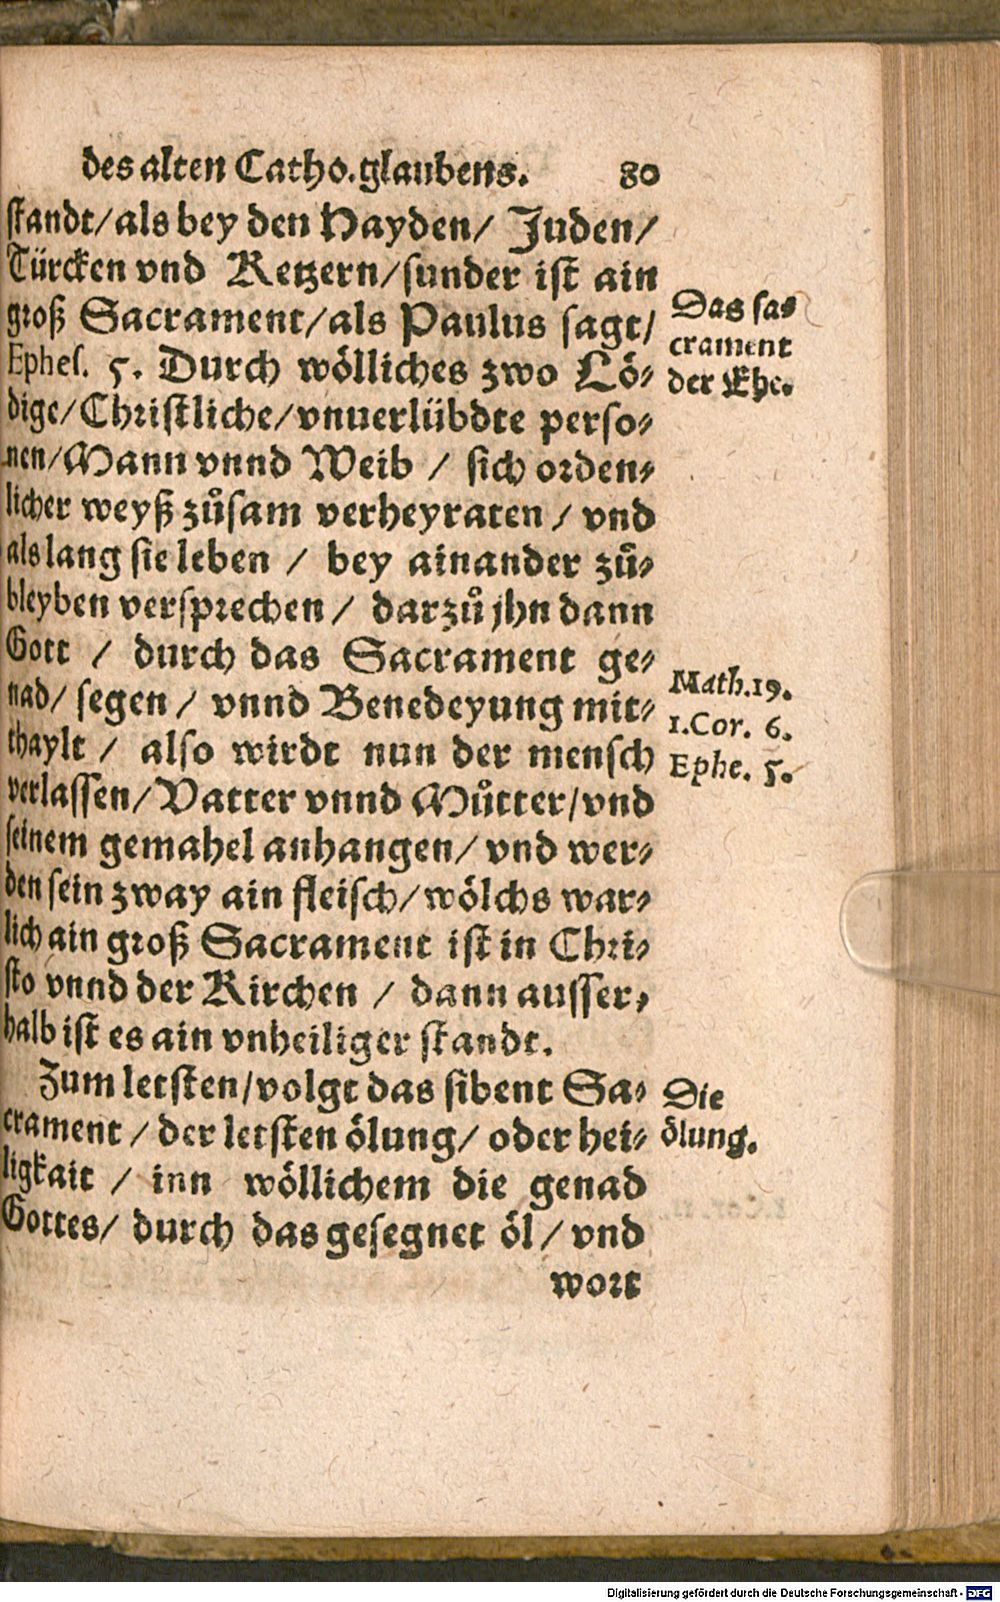 des alten Catho. glaubens. 80
standt/ als bey den Hayden/ Juden/
Türcken vnd Ketzern/ sunder ist ain
groß Sacrament/ als Paulus sagt/
Ephes. 5. Durch wölliches zwo Lö⸗
dige/ Christliche/ vnuerlübdte perso⸗
nen/ Mann vnnd Weib / sich orden⸗
licher weyß zůsam verheyraten / vnd
als lang sie leben / bey ainander zů⸗
bleyben versprechen / darzů jhn dann
Gott / durch das Sacrament ge⸗
nad/ segen / vnnd Benedeyung mit⸗
thaylt / also wirdt nun der mensch
verlassen/ Vatter vnnd Můtter/ vnd
seinem gemahel anhangen/ vnd wer⸗
den sein zway ain fleisch/ wölchs war⸗
lich ain groß Sacrament ist in Chri⸗
sto vnnd der Kirchen / dann ausser⸗
halb ist es ain vnheiliger standt.
Zum letsten/ volgt das sibent Sa⸗
crament / der letsten ölung/ oder hei⸗
ligkait / inn wöllichem die genad
Gottes/ durch das gesegnet öl / vnd
wort
Das sa⸗
crament
der Ehe.
Math. 19.
1. Cor. 6.
Ephe. 5.
Die
ölung.
Digitalisierung gefördert durch die Deutsche Forschungsgemeinschaft - DFG